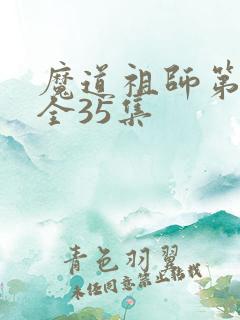 魔道祖师第
全35集
青色羽翼
未经同意禁止转载